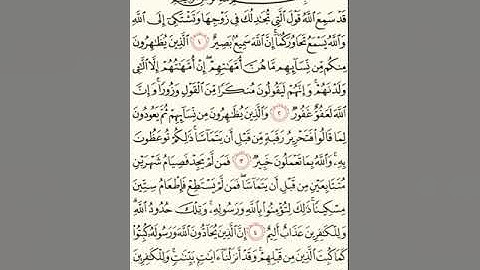 قَدْ سَمِعَ اللَّهُ قَوْلَ الَّتِي تُجَادِلُكَ فِي زَوْجِهَا وَتَشْتَكِي إِلَى اللَّهِ
وَاللَّهُ يَسْمَعُ تَحَاوُرَكُمَا إِنَّ اللَّهَ سَمِيعٌ بَصِيرٌ ١ الَّذِينَ يُظَاهِرُونَ
مِنكُم مِّن نِّسَائِهِم مَّا هُنَّ أُمَّهَاتِهِمْ إِنْ أُمَّهَاتُهُمْ إِلَّا اللَّائِي
وَلَدْنَهُمْ وَإِنَّهُمْ لَيَقُولُونَ مُنكَرًا مِّنَ الْقَوْلِ وَزُورًا وَإِنَّ
اللَّهَ لَعَفُوٌّ غَفُورٌ ٢ وَالَّذِينَ يُظَاهِرُونَ مِن نِّسَائِهِمْ ثُمَّ يَعُودُونَ
لِمَا قَالُوا فَتَحْرِيرُ رَقَبَةٍ مِّن قَبْلِ أَن يَتَمَاسَّا ذَٰلِكُمْ تُوعَظُونَ
بِهِ وَاللَّهُ بِمَا تَعْمَلُونَ خَبِيرٌ ٣ فَمَن لَّمْ يَجِدْ فَصِيَامُ شَهْرَيْنِ
مُتَتَابِعَيْنِ مِن قَبْلِ أَن يَتَمَاسَّا فَمَن لَّمْ يَسْتَطِعْ فَإِطْعَامُ سِتِّينَ
مِسْكِينًا ذَٰلِكَ لِتُؤْمِنُوا بِاللَّهِ وَرَسُولِهِ وَتِلْكَ حُدُودُ اللَّهِ
وَلِلْكَافِرِينَ عَذَابٌ أَلِيمٌ ٤ إِنَّ الَّذِينَ يُحَادُّونَ اللَّهَ وَرَسُولَهُ كُبِتُوا
كَمَا كُبِتَ الَّذِينَ مِن قَبْلِهِمْ وَقَدْ أَنزَلْنَا آيَاتٍ بَيِّنَاتٍ وَلِلْكَافِرِينَ